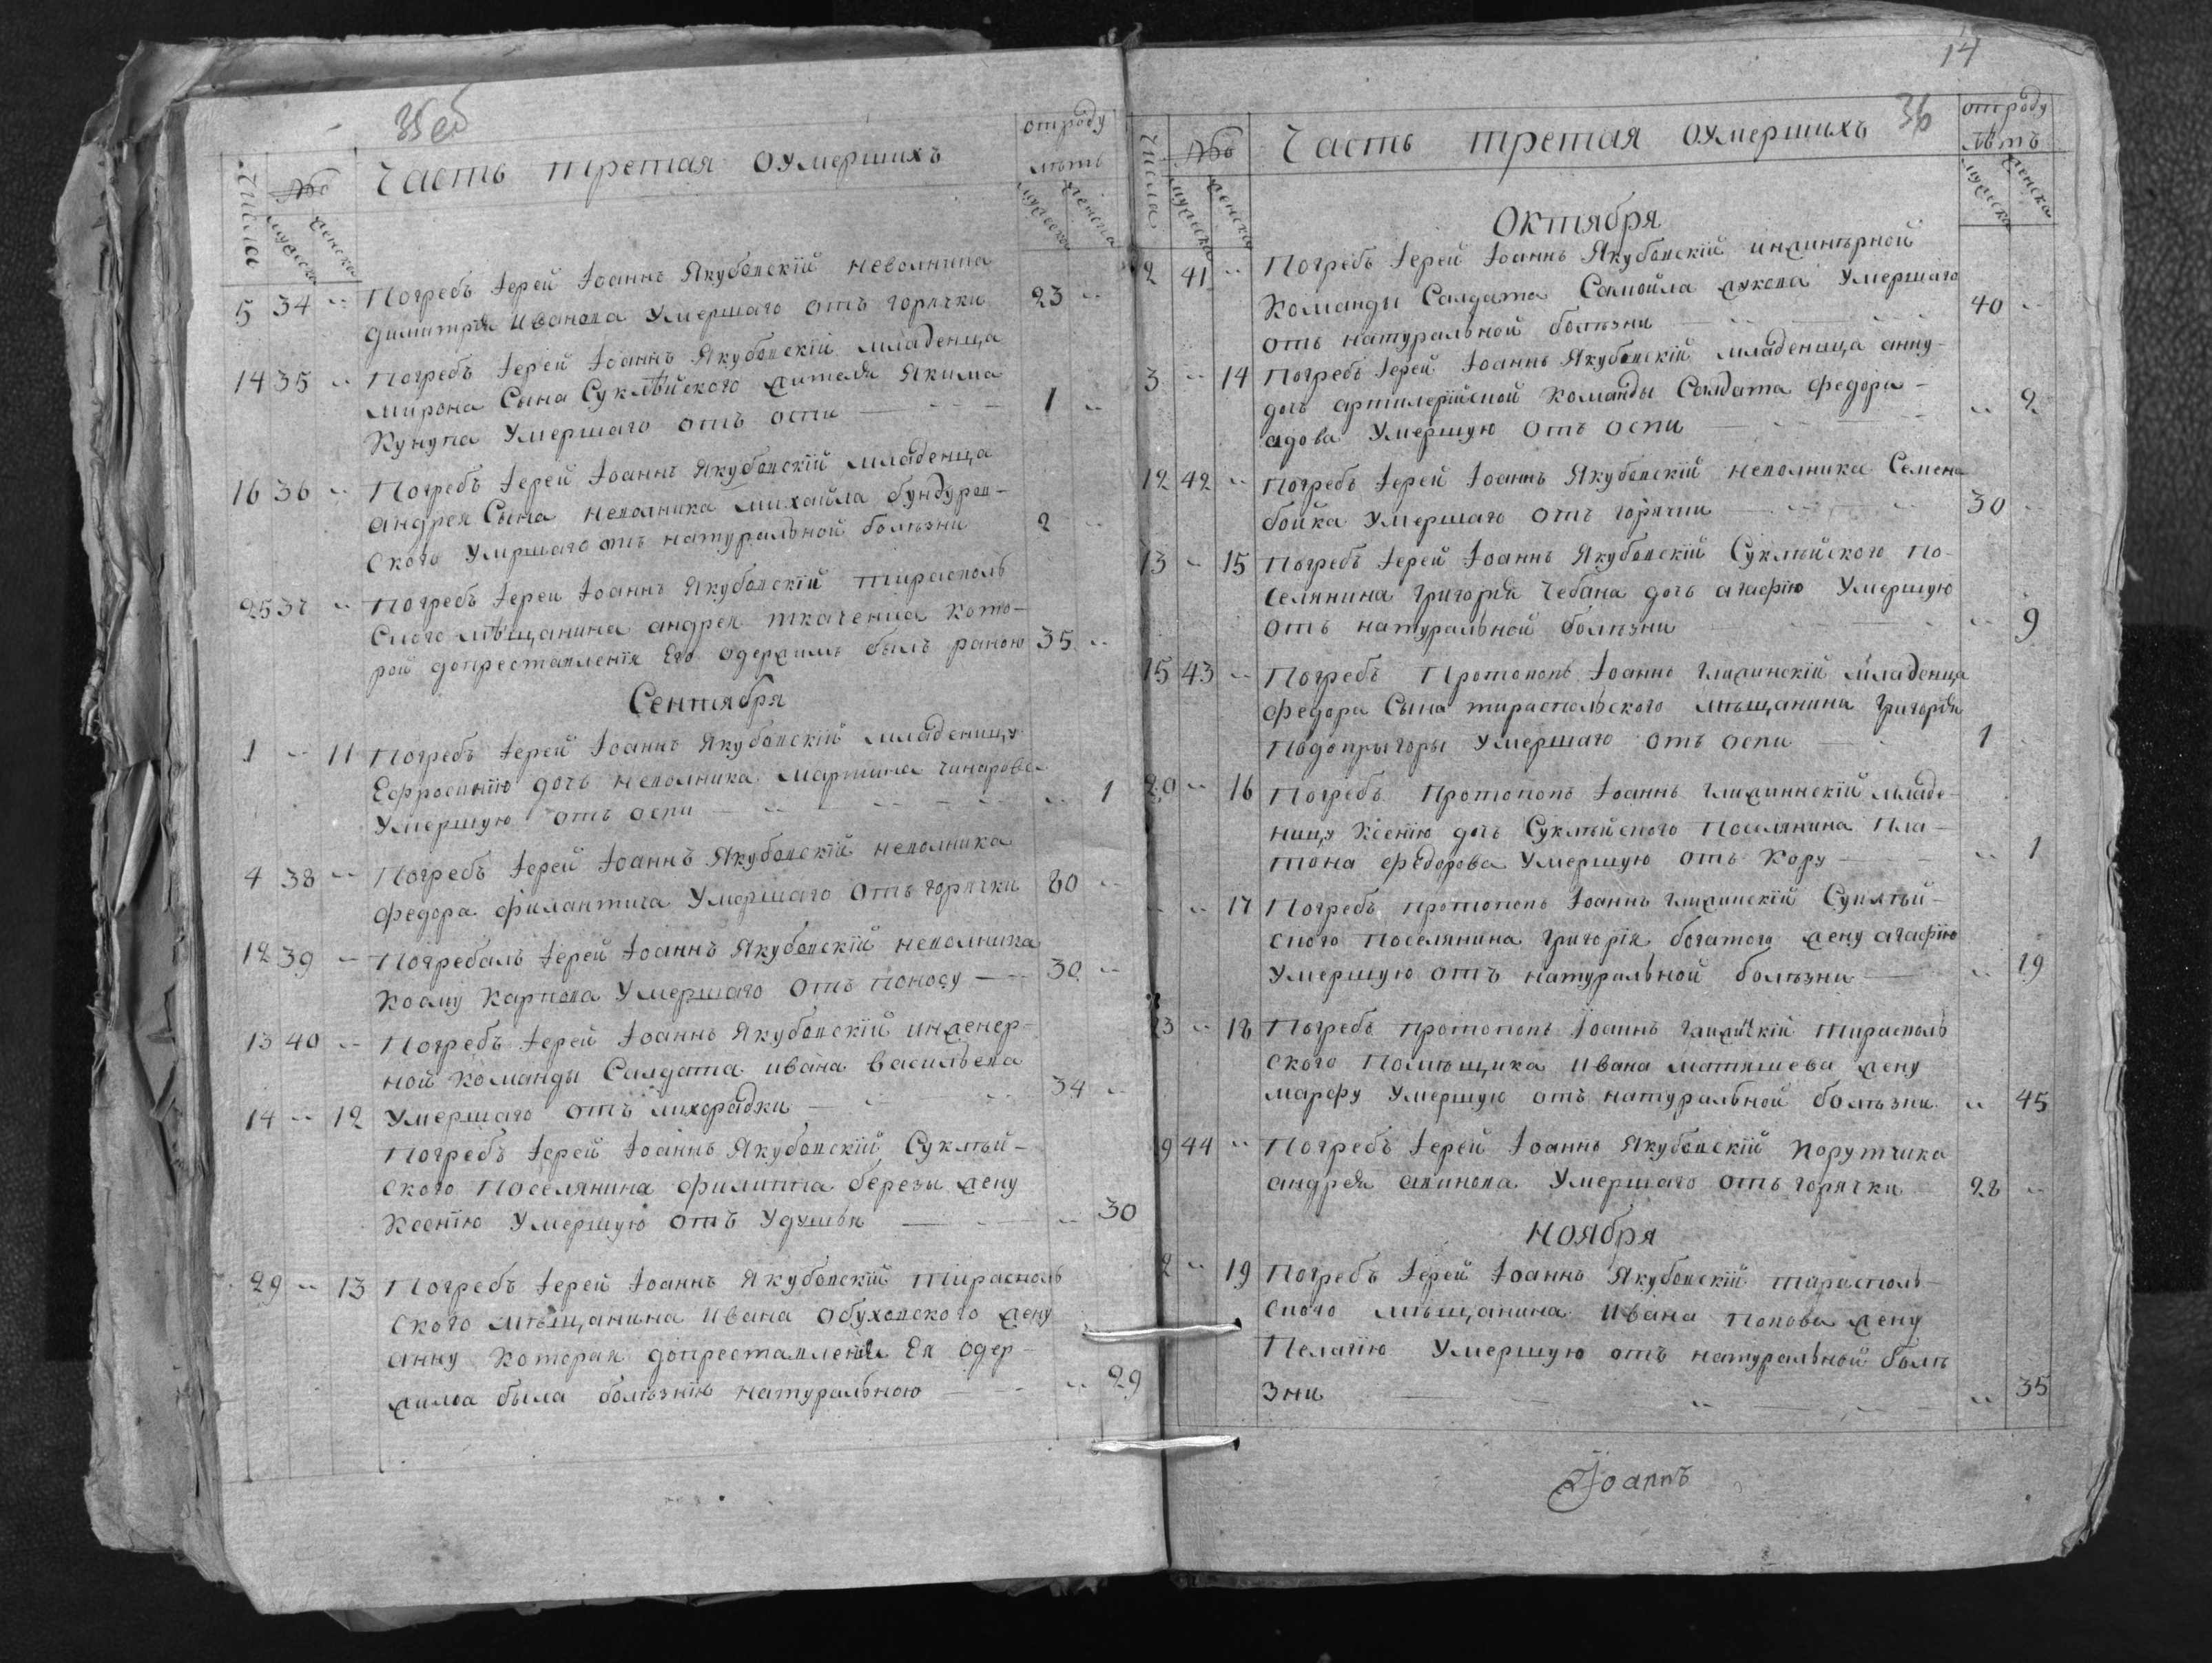 35 об
Числа
№о
мужеска
женска
Часть третая оумершихъ
отроду
лѣтъ
мужеска
женска
5 34 Погребъ Іерей Іоаннъ Якубовскій неволника
Димитрія Иванова Умершаго отъ горячки 23
14 35 Погребъ Іерей Іоаннъ Якубовскій младенца
мирона Сына Суклѣйского жителя Якима
Кунупа Умершаго отъ оспи 1
16 36 Погребъ Іерей Іоаннъ Якубовскій младенца
андрея Сына неволника михайла бундуров-
ского Умршаго отъ натуральной болѣзни 2
25 37 Погребъ Іерей Іоаннъ Якубовскій тирасполь
ского мѣщанина андрея ткаченка кото-
рой допреставленія Его одержимъ былъ раною 35
Сентября
1 11 Погребъ Іерей Іоаннъ Якубовскій младеницу
Ефросинію дочь неволника мартина чинарова
Умершую отъ оспи 1
4 38 Погребъ Іерей Іоаннъ Якубовскій неволника
федора филантича Умершаго отъ горячки 80
12 39 Погребалъ Іерей Іоаннъ Якубовскій неволника
Козму Карпова Умершаго отъ поносу 30
13 40 Погребъ Іерей Іоаннъ Якубовскій инженер-
ной команды Салдата ивана васильева
34
14 12 Умершаго отъ лихорадки
Погребъ Іерей Іоаннъ Якубовскій Суклѣй-
ского Поселянина филиппа березы жену
Ксенію Умершую отъ Удушья 30
29 13 Погребъ Іерей Іоаннъ Якубовскій тирасполь
ского мѣщанина ивана обуховского жену
анну которая допреставленія Ея одер-
жима была болѣзнію натуральною 29
14
36
Числа
№о
мужеска
женска
Часть третая оумершихъ
отроду
лѣтъ
мужеска
женска
Октября
2 41 Погребъ Іерей Іоаннъ Якубовскій инжинѣрной
команды Салдата Самойла жукова Умершаго
отъ натуральной болѣзни 40
3 14 Погребъ Іерей Іоаннъ Якубовскій младеница анну-
дочь артилерійской команды Салдата федора-
адова Умершую отъ оспи 2
12 42 Погребъ Іерей Іоаннъ Якубовскій неволника Семена
бойка Умершаго отъ горячки 30
13 15 Погребъ Іерей Іоаннъ Якубовскій Суклѣйского по-
селянина григорія Чебана дочь агафію Умершую
отъ натуральной болѣзни 9
15 43 Погребъ Протопопъ Іоаннъ глижинскій младенца
федора Сына тираспольского мѣщанина григорія
Подопрыгоры Умершаго отъ оспи 1
20 16 Погребъ Протопопъ Іоаннъ глижиннскій младе-
ницу Ксенію дочь Суклѣйского Поселянина Пла-
тона федорова Умершую отъ кору 1
17 Погребъ протопопъ Іоаннъ глижинскій Суклѣй-
ского поселянина григорія богатого жену агафію
Умершую отъ натуральной болѣзни 19
23 18 Погребъ протопопъ Іоаннъ глижинскій тирасполь
ского Помѣщика ивана матяшева жену
марфу Умершую отъ натуральной болѣзни 45
9 44 Погребъ Іерей Іоаннъ Якубовскій порутчика
андрея Умершаго отъ горячки 28
Ноября
2 19 Погребъ Іерей Іоаннъ Якубовскій тирасполь-
ского мѣщанина ивана попова жену
Пелагію Умершую отъ натуральной болѣ
зни 35
Іоаннъ